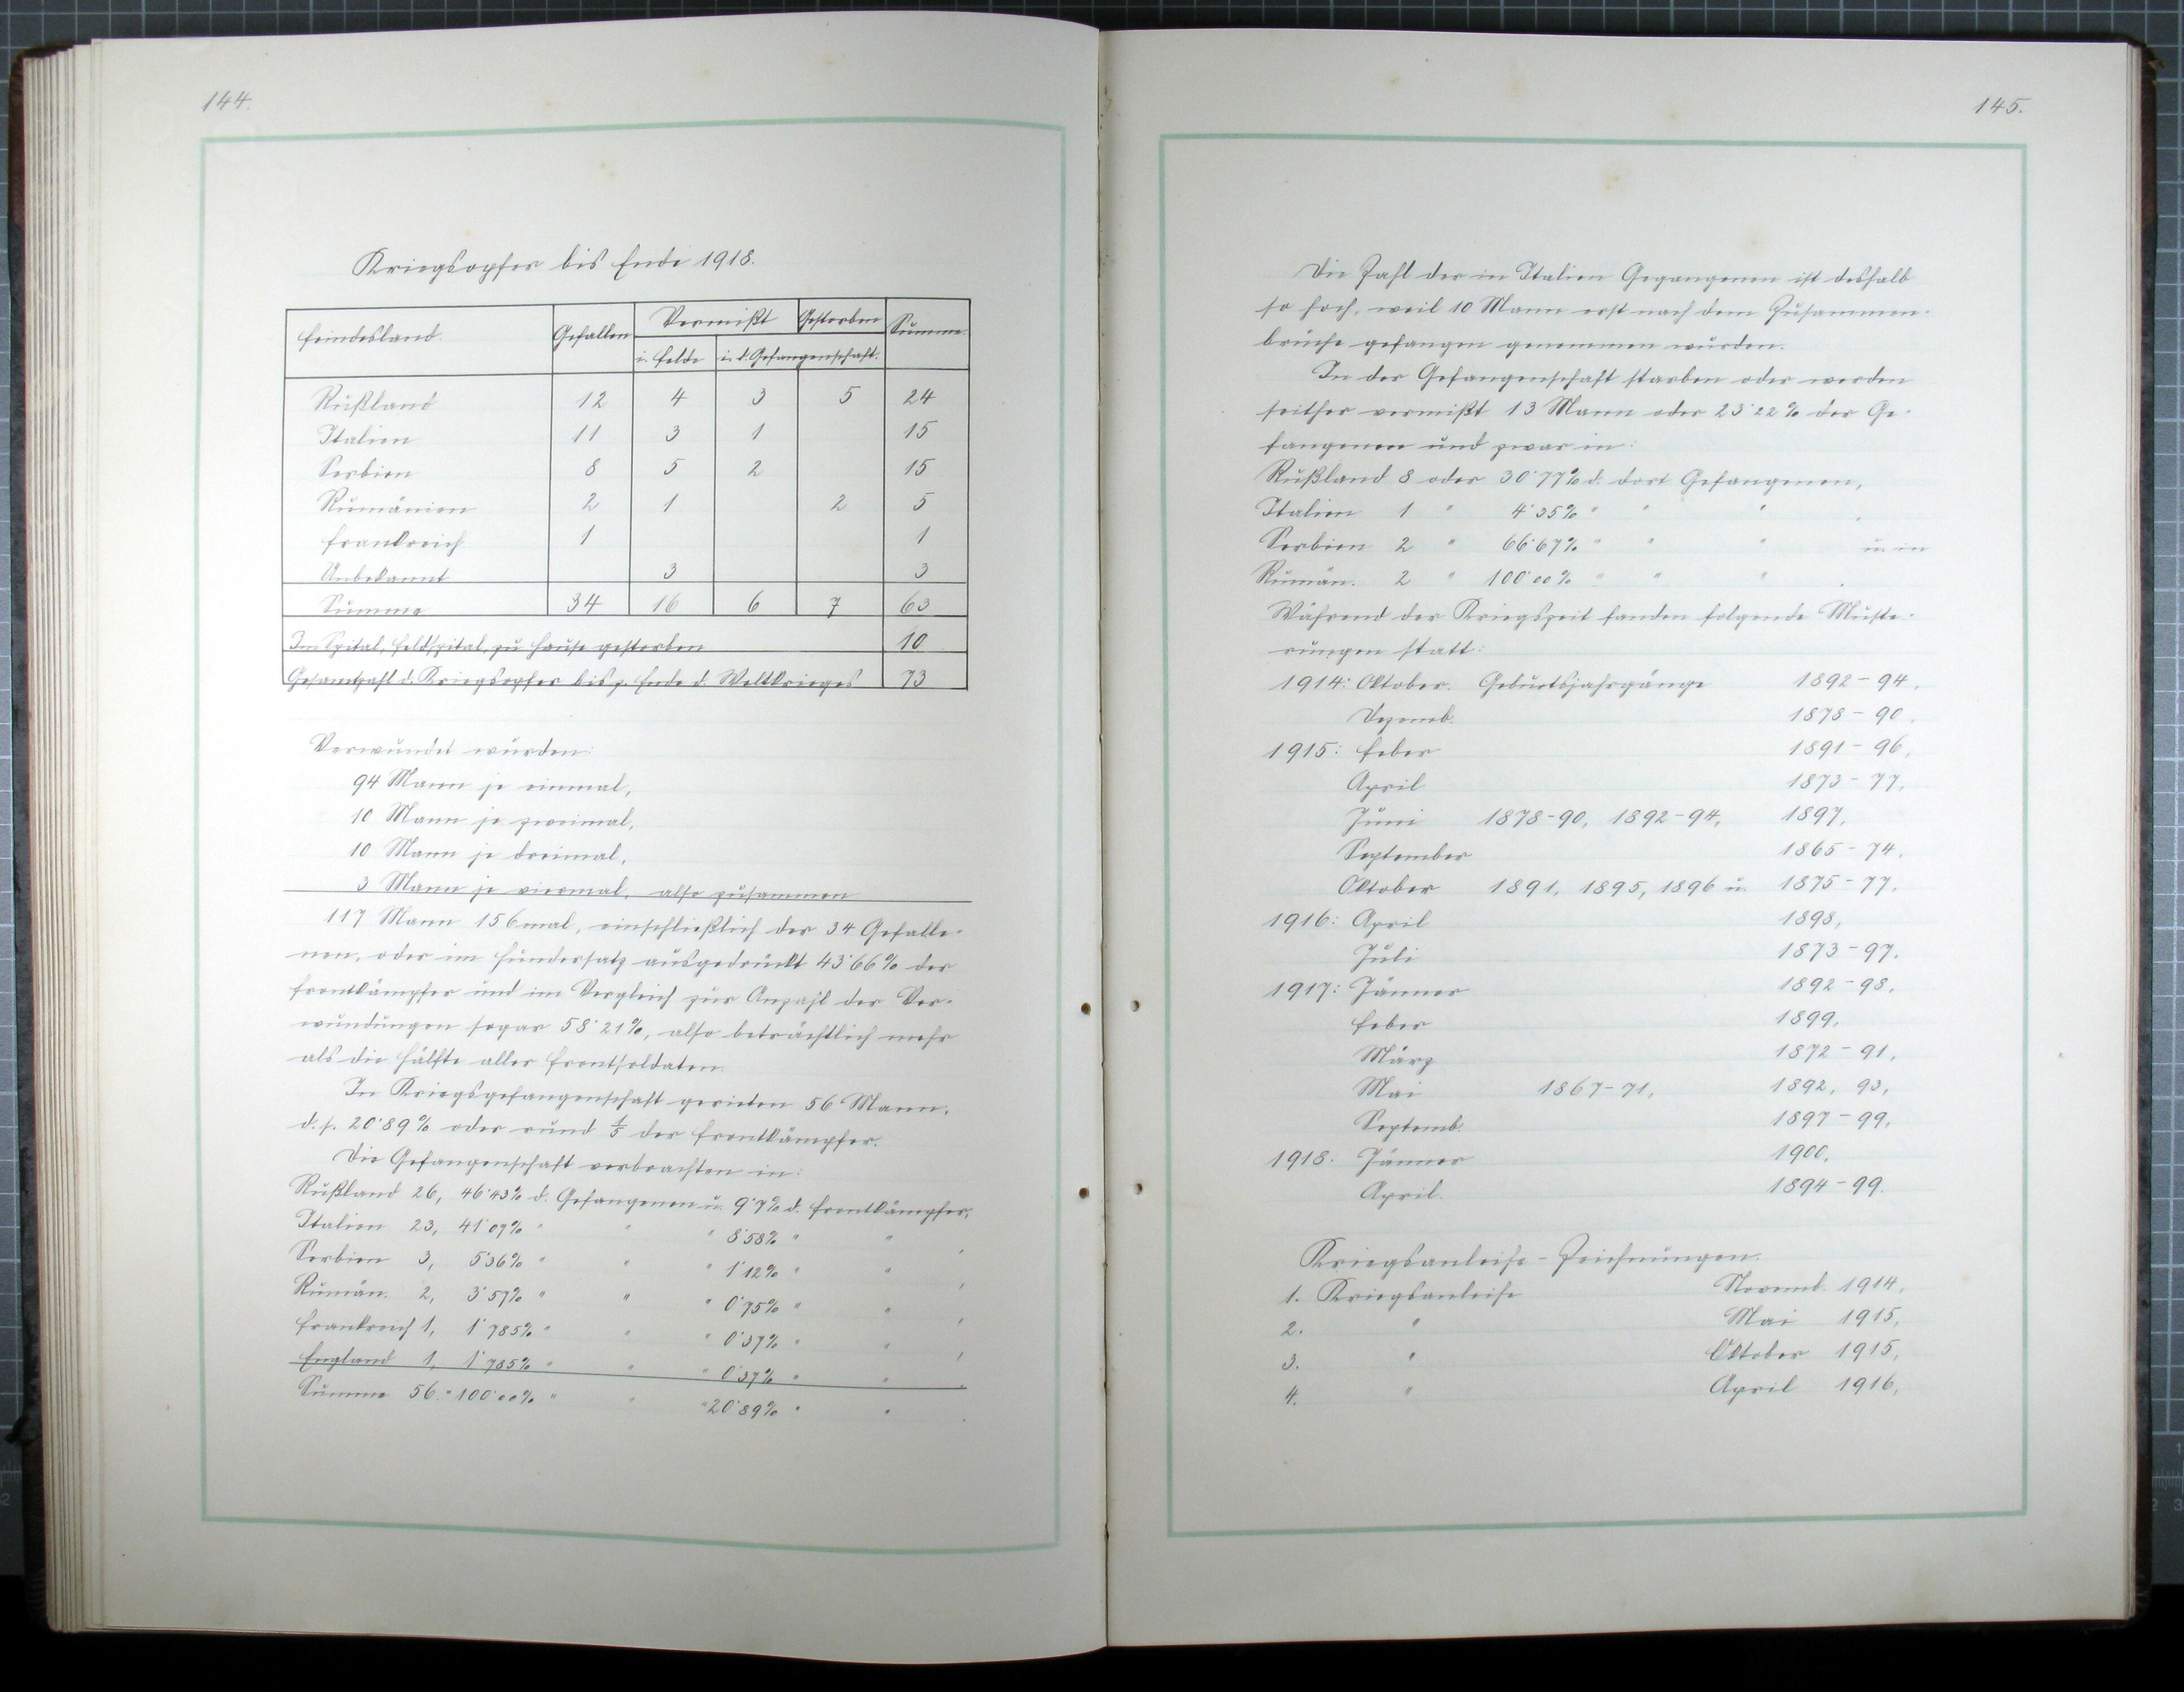 144.
Kriegsopfer bis Ende 1918.
Feindesland. Gefallen Vermißt Gestorben Summe
i. Felde in d. Gefangenschaft.
Rußland 12 4 3 5 24
Italien 11 3 1 15
Serbien 8 5 2 15
Rumänien 2 1 2 5
Frankreich 1 1
Unbekannt 3 3
Summe 34 16 6 7 63
Im Spital, Feldspital, zu Hause gestorben 10
Gesamtzahl d. Kriegsopfer bis z. Ende d. Weltkrieges 73
Verwundet wurden:
94 Mann je einmal,
10 Mann je zweimal,
10 Mann je dreimal,
3 Mann je viermal, also zusammen
117 Mann 156mal, einschließlich der 34 Gefalle-
nen, oder im Hundersatz ausgedrückt 43·66% der
Frontkämpfer und im Vergleich zur Anzahl der Ver-
wundungen sogar 58·21%, also beträchtlich mehr
als die Hälfte aller Frontsoldaten.
In Kriegsgefangenschaft gerieten 56 Mann,
d. s. 20·89% oder rund 1/5 der Frontkämpfer.
Die Gefangenschaft verbrachten in:
Rußland 26, 46·43% d. Gefangenen u. 9·7% d. Frontkämpfer,
Italien 23, 41·07% " " " 8·58% " " ,
Serbien 3, 5·36% " " " 1·12% " " ,
Rumän. 2, 3·57% " " " 0·75% " " ,
Frankreich 1, 1·785% " " " 0·37% " " ,
England 1, 1·785% " " " 0·37% " " ,
Summe 56. " 100·00% " " " 20·89% " " .
145.
Die Zahl der in Italien Gegangenen ist deshalb
so hoch, weil 10 Mann erst nach dem Zusammen-
bruche gefangen genommen wurden.
In der Gefangenschaft starben oder werden
seither vermißt 13 Mann oder 23·22% der Ge-
fangenen und zwar in:
Rußland 8 oder 30·77% d. dort Gefangenen,
Italien 1 " 4·35% " " " ,
Serbien 2 " 66·67% " " " u. in
Rumän. 2 " 100·00% " " " .
Während der Kriegszeit fanden folgende Muste-
rungen statt:
1914: Oktober. Geburtsjahrgänge 1892-94,
Dezemb. 1878-90,
1915: Feber 1891-96,
April 1873-77,
Juni 1878-90, 1892-94, 1897,
September 1865-74,
Oktober 1891, 1895, 1896 u. 1875-77,
1916: April 1898,
Juli 1873-97,
1917: Jänner 1892-98,
Feber 1899,
März 1872-91,
Mai 1867-71, 1892, 93,
Septemb. 1897-99,
1918: Jänner 1900,
April. 1894-99.
Kriegsanleihe-Zeichnungen.
1. Kriegsanleihe Novemb. 1914,
2. " Mai 1915,
3. " Oktober 1915,
4. " April 1916,